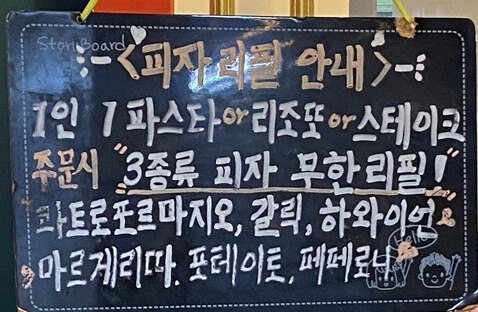 Story Board
<피자 리필 안내>
1인 1 파스타 or 리조또 or 스테이크
주문시 "3종류 피자 무한리필!"
콰트로포르마지오, 갈릭, 하와이언
마르게리따. 포테이토, 페페로니
Hello